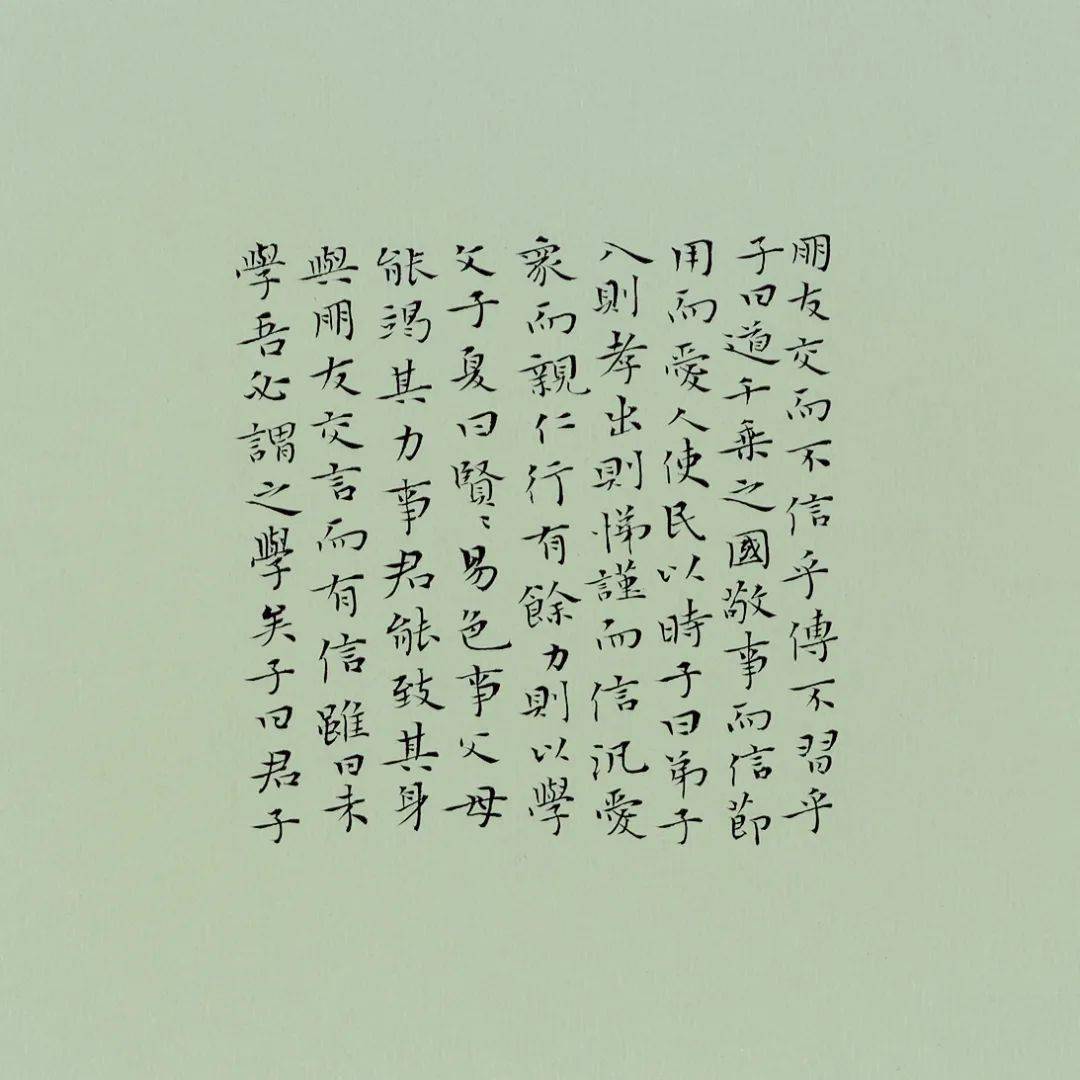 朋友交而不信乎傳不習乎
子曰道千乘之國敬事而信節
用而愛人使民以時子曰弟子
入則孝出則悌謹而信汎愛
衆而親仁行有餘力則以學
文子夏曰賢〻易色事父母
能竭其力事君能致其身
與朋友交言而有信雖曰未
學吾必謂之學矣子曰君子